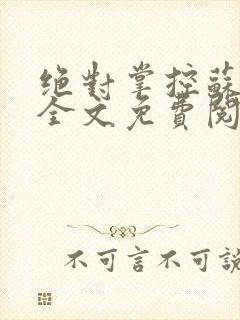 絕對掌控蘇
全文免費閱
不可言不可說